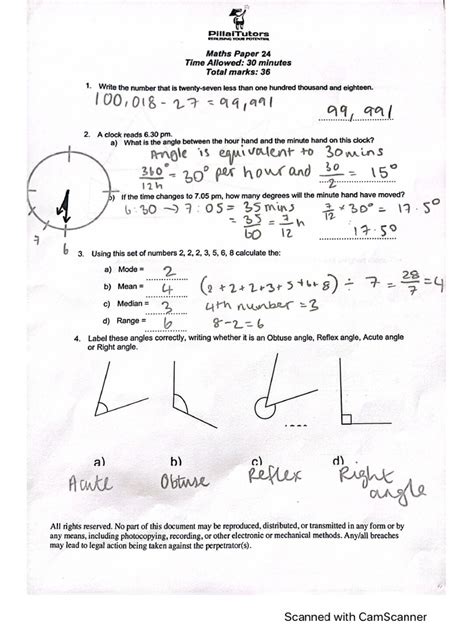 PillaiTutors
REALISING YOUR POTENTIAL
Maths Paper 24
Time Allowed: 30 minutes
Total marks: 36
1. Write the number that is twenty-seven less than one hundred thousand and eighteen.
100,018 - 27 = 99,991
99,991
2. A clock reads 6.30 pm.
a) What is the angle between the hour hand and the minute hand on this clock?
Angle is equivalent to 30 mins
360°/12h = 30° per hour and 30/2 = 15°
b) If the time changes to 7.05 pm, how many degrees will the minute hand have moved?
6:30 → 7:05 = 35 mins 7/12 × 30° = 17.5°
= 35/60 = 7/12 h
17.5°
7
6
3. Using this set of numbers 2, 2, 2, 3, 5, 6, 8 calculate the:
a) Mode = 2
b) Mean = 4 (2+2+2+3+5+6+8) ÷ 7 = 28/7 = 4
c) Median = 3 4th number = 3
d) Range = 6 8-2=6
4. Label these angles correctly, writing whether it is an Obtuse angle, Reflex angle, Acute angle
or Right angle.
a) b) c) d)
Acute Obtuse Reflex Right
angle
All rights reserved. No part of this document may be reproduced, distributed, or transmitted in any form or by
any means, including photocopying, recording, or other electronic or mechanical methods. Any/all breaches
may lead to legal action being taken against the perpetrator(s).
Scanned with CamScanner